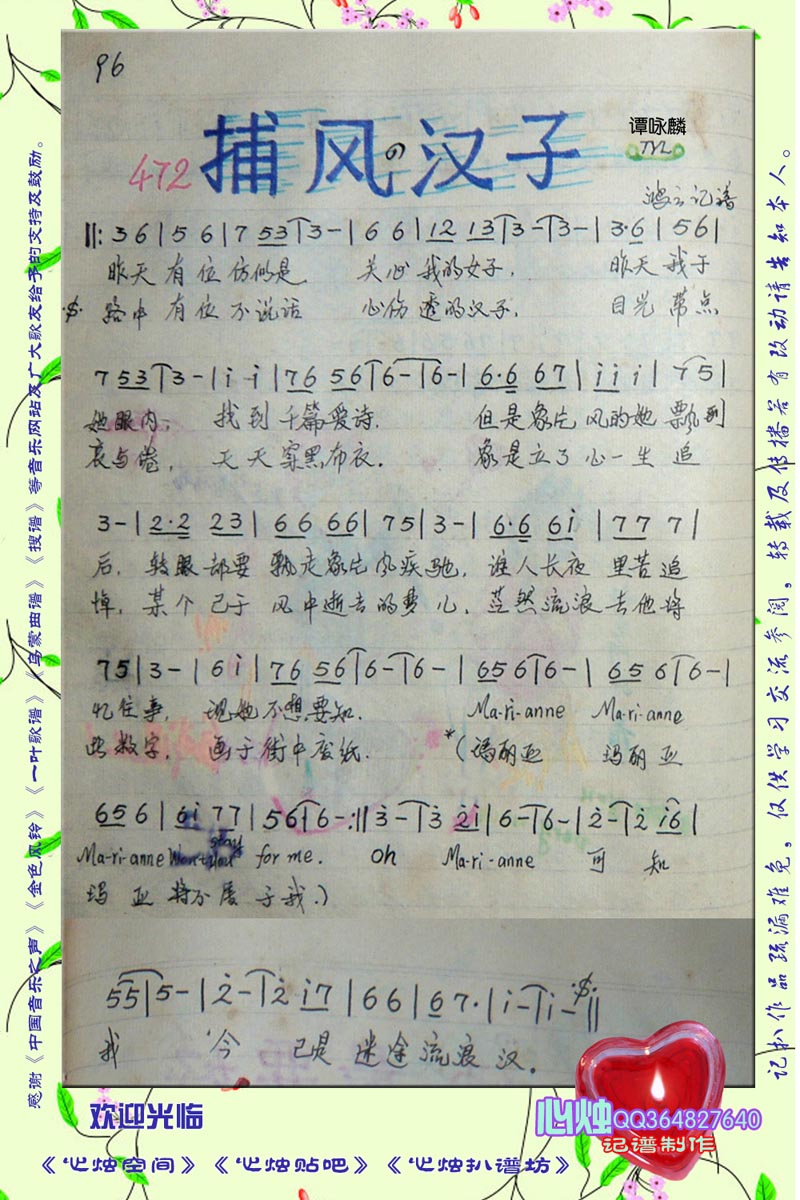 96
472 捕风の汉子
谭咏麟
TYL
鸿云记谱
‖: 3 6 | 5 6 | 7 53 | 3 - | 6 6 | 12 13 | 3 - | 3 - | 3·6 | 5 6 |
昨天 有位 仿似是 关心 我的女子, 昨天 我于
路中 有位 不说话 心伤 透的汉子, 目光 带点
7 53 | 3 - | i i | 76 56 | 6 - | 6 - | 6·6 67 | i i i | 7 5 |
她眼内, 找到 千篇爱诗. 但是象片 风的她 飘到
哀与倦, 天天 穿黑布衣. 象是立了 心一生 追
3 - | 2·2 23 | 6 6 66 | 75 | 3 - | 6·6 6i | 77 7 |
后, 转眼却要 飘走象片风疾驰, 谁人长夜 里苦追
悼, 某个已于 风中逝去的梦儿, 茫然流浪 去他将
75 | 3 - | 6 i | 76 56 | 6 - | 6 - | 65 6 | 6 - | 65 6 | 6 - |
忆往事, 现她不想要知. Ma-ri-anne Ma-ri-anne
此数字, 画于街中废纸. *(玛丽亚 玛丽亚
65 6 | 6i 77 | 56 | 6 - :‖ 3 - | 3 2i | 6 - | 6 - | 2 - | 2 i6 |
Ma-ri-anne Won't you stay for me. Oh Ma-ri-anne 可 知
玛 亚 将不属 于我.)
55 | 5 - | 2 - | 2 i7 | 6 6 | 6 7· | i - | i - ‖
我 今 已是 迷途 流浪 汉.
感谢《中国音乐之声》《金色风铃》《一叶歌谱》《乌蒙曲谱》《搜谱》等音乐网站及广大歌友给予的支持及鼓励。
记扒作品疏漏难免，仅供学习交流参阅，转载及传播若有改动请告知本人。
欢迎光临
心烛QQ364827640
记谱制作
《心烛空间》《心烛贴吧》《心烛扒谱坊》